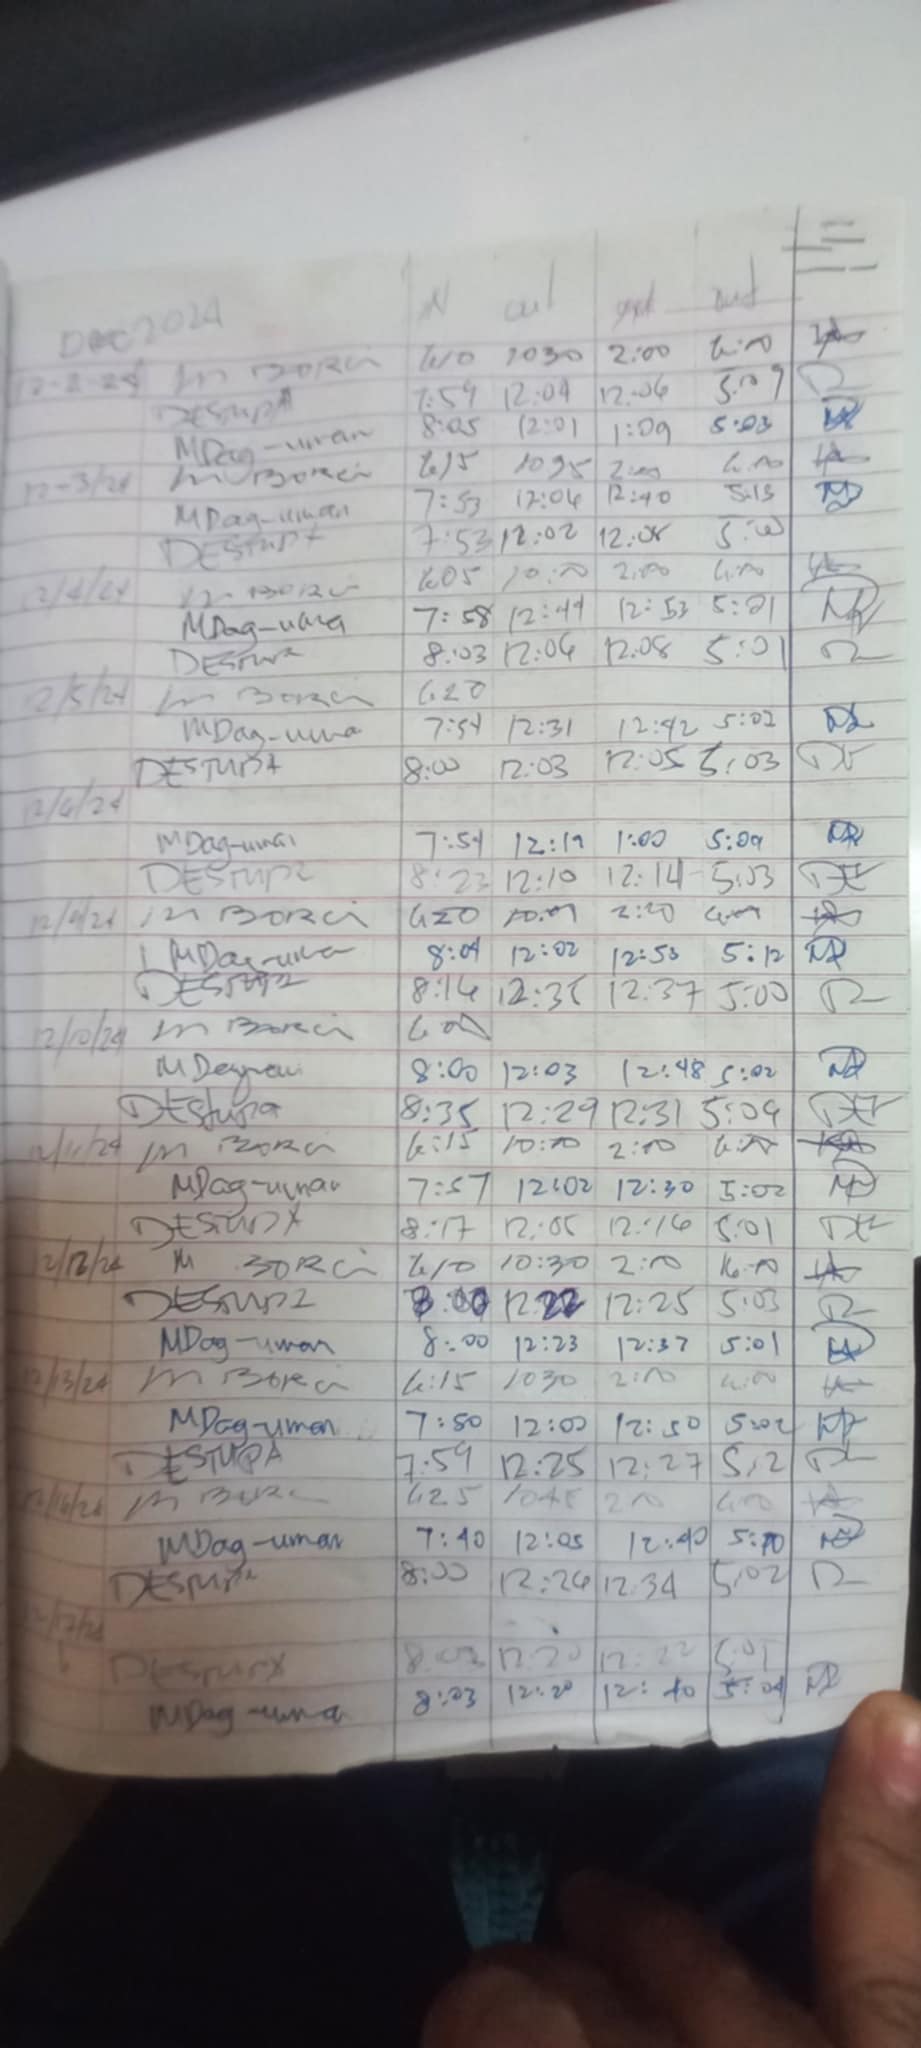 Dec 2024
N out out
12-2-24 M Borci 6:10 1030 2:00 6:00
DESTUPA 7:59 12:04 12:06 5:09
MDag-uman 8:05 12:01 1:09 5:03
12-3/24 M Borci 615 2:00 6:00
MDag-uman 7:53 12:04 12:40 5:13
DESTUPA 7:53 12:02 12:05 5:00
12/4/24 M Borci 605 10:00 2:00 6:00
MDag-uma 7:58 12:44 12:53 5:01
DESTUPA 8:03 12:06 12:08 5:01
12/5/24 M Borci 620
MDag-uma 7:54 12:31 12:42 5:02
DESTUPA 8:00 12:03 12:05 5:03
12/6/24
MDag-uman 7:54 12:19 1:00 5:09
DESTUPA 8:23 12:10 12:14 5:03
12/9/24 M Borci 620 2:20
MDag-uman 8:04 12:02 12:53 5:12
DESTUPA 8:16 12:37 5:00
12/10/24 M Borci
8:00 12:03 12:48 5:02
DEStupa 8:35 12:29 12:31 5:09
12/11/24 M Borci 6:15 10:00 2:00 6:00
MDag-uman 7:57 12:02 12:30 5:02
DESTUPA 8:17 12:05 12:16 5:01
12/12/24 M Borci 6:10 10:30 2:00
DESTUPA 12:22 12:25 5:03
MDag-uman 8:00 12:23 12:37 5:01
12/13/24 M Borci 6:15 1030 2:00 6:00
MDag-uman 7:50 12:00 12:50 5:02
DESTUPA 7:59 12:25 12:27 5:2
12/16/24 M Borci 625 1045 200 6:00
MDag-uman 7:40 12:05 12:40 5:10
DESTUPA 8:00 12:26 12:34 5:02
12/17/24
DESTUPA 8:03 12:20 12:22 5:01
MDag-uma 8:03 12:20 12:40 5:04